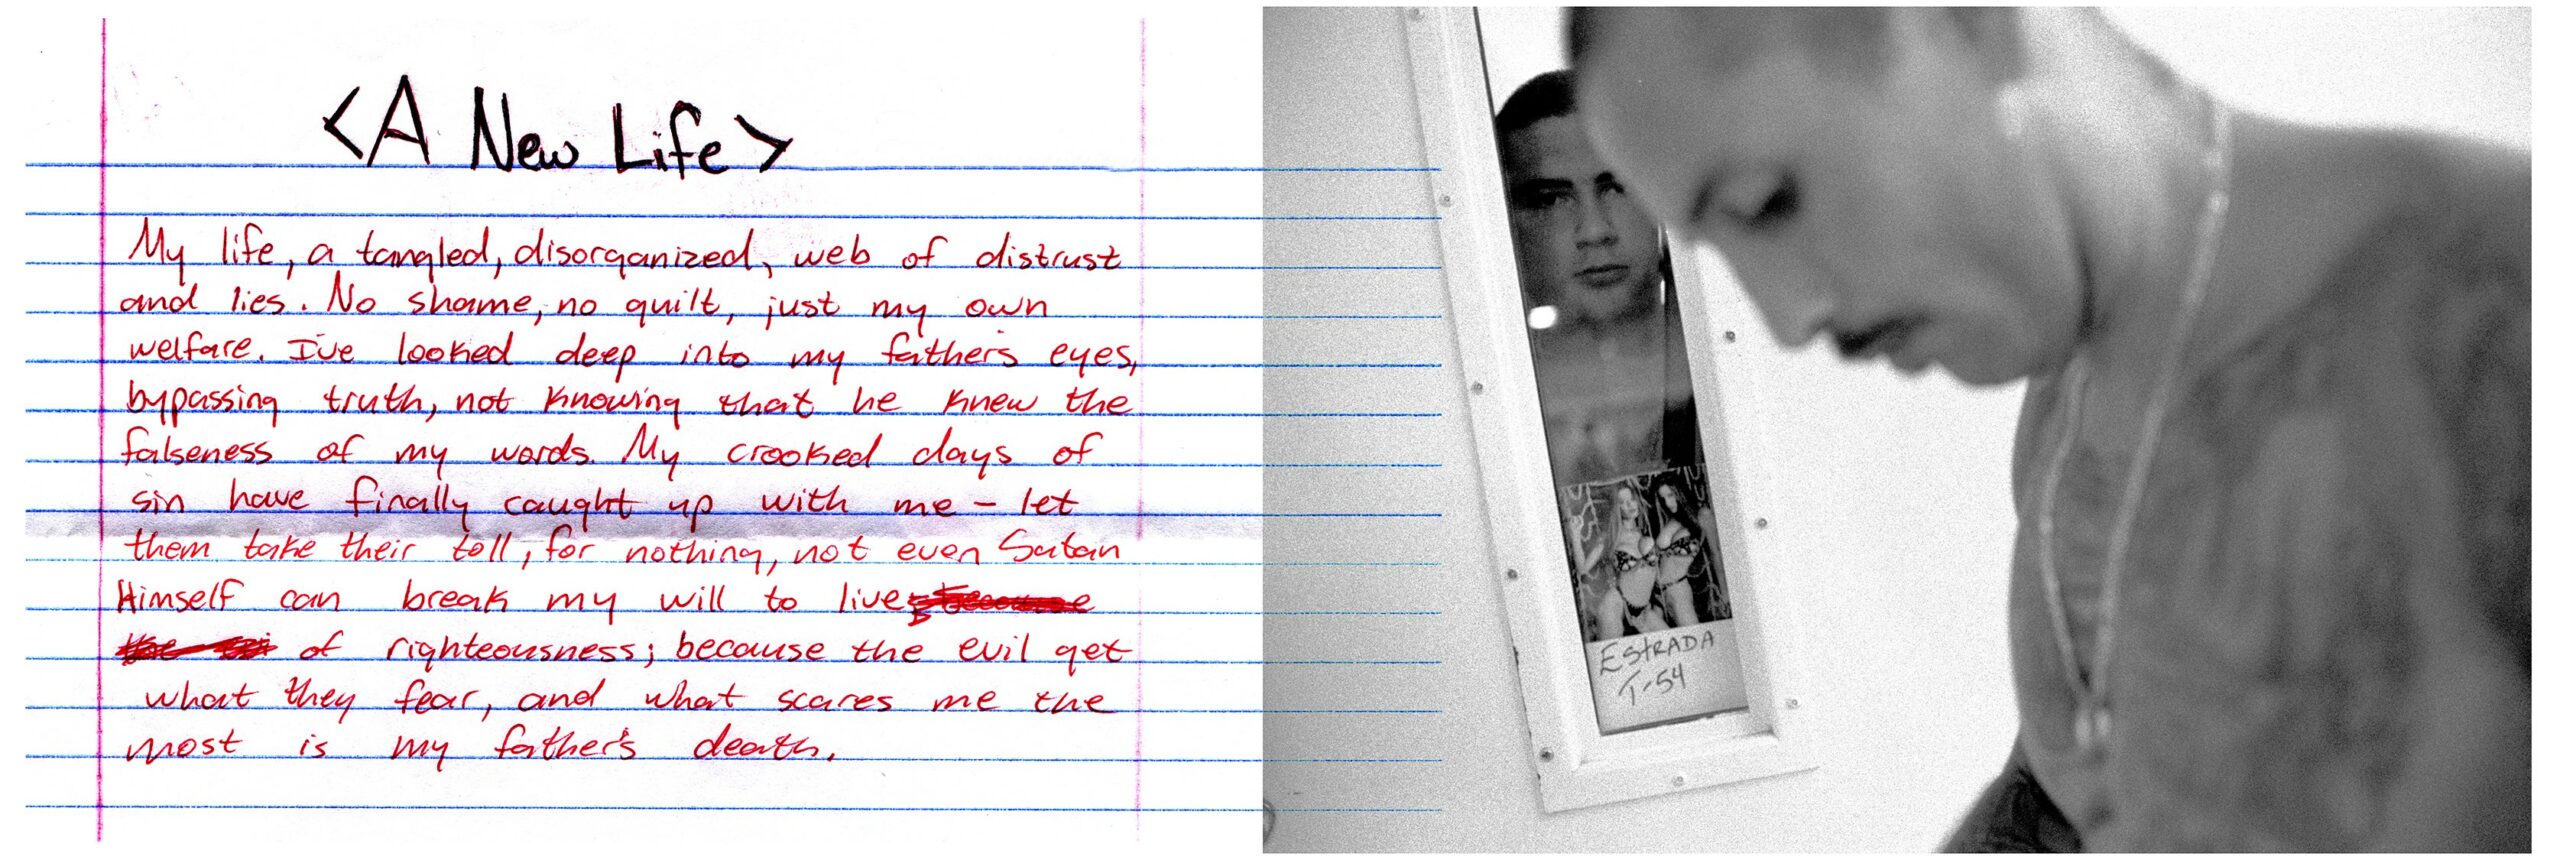 <A New Life>
My life, a tangled, disorganized, web of distrust
and lies. No shame, no guilt, just my own
welfare. I've looked deep into my father's eyes,
bypassing truth, not knowing that he knew the
falseness of my words. My crooked days of
sin have finally caught up with me - let
them take their toll, for nothing, not even Satan
Himself can break my will to live
of righteousness; because the evil get
what they fear, and what scares me the
most is my father's death.
ESTRADA
T-54